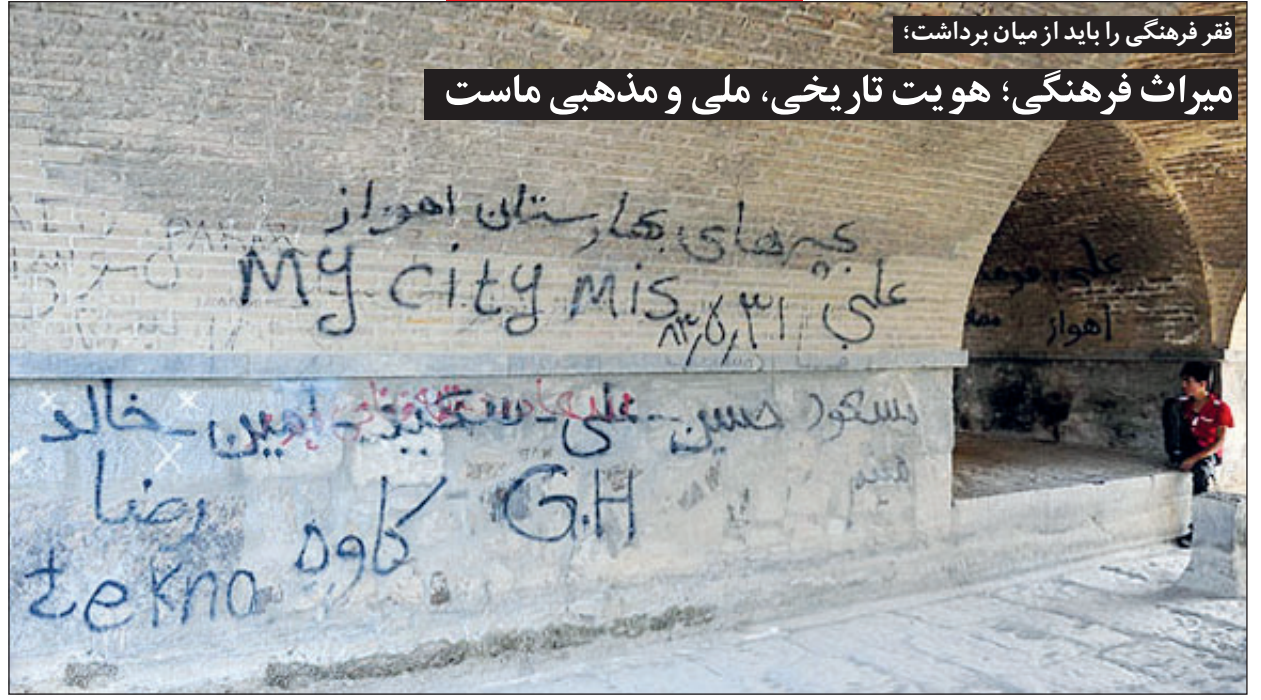 فقر فرهنگی را باید از میان برداشت؛
میراث فرهنگی؛ هویت تاریخی، ملی و مذهبی ماست
بچه‌های بهارستان اهواز
My city mis
علی ۸۳/۵/۳۱
علی
اهواز
مسعود حسین - علی - سعید - امین - خالد
میثم
رضا
کاوه
G.H
tekno